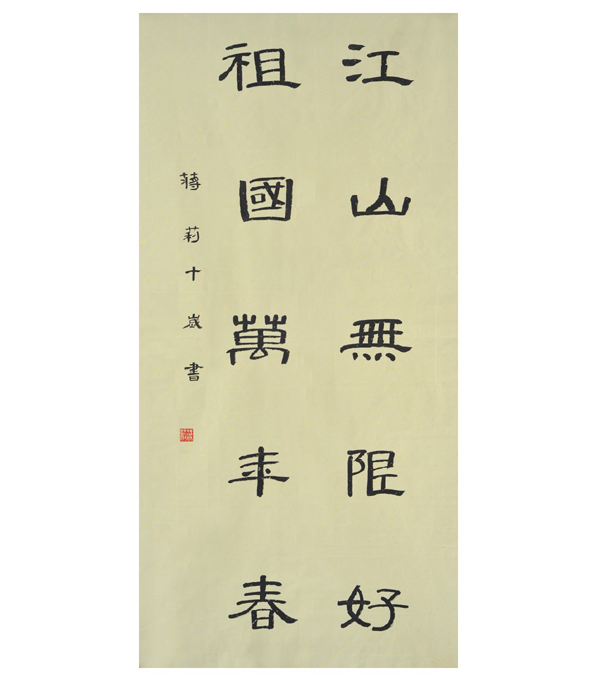 江山無限好
祖國萬年春
蔣莉十歲書